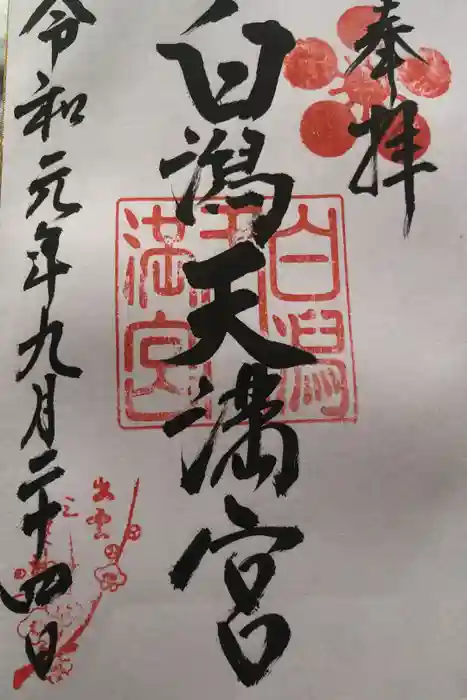 奉拝
白潟天満宮
白潟天満宮
令和元年九月二十四日
出雲